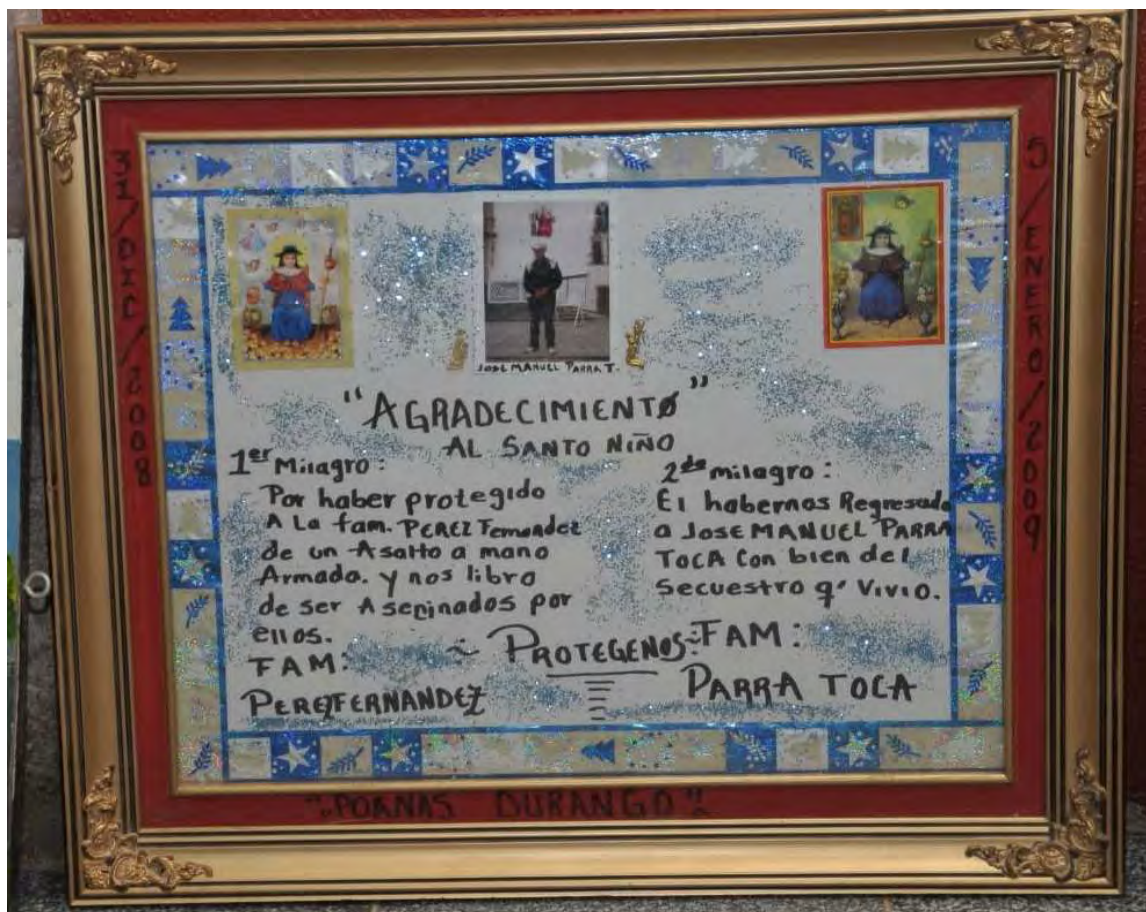 31/DIC/2008
5/ENERO/2009
JOSE MANUEL PARRA T.
"AGRADECIMIENTO"
AL SANTO NIÑO
1er Milagro:
Por haber protegido
A La fam. PEREZ Fernandez
de un Asalto a mano
Armada. y nos libro
de ser Asecinados por
ellos.
FAM:
PEREZ FERNANDEZ
2do milagro:
El habernos Regresado
a JOSE MANUEL PARRA
TOCA Con bien del
Secuestro q' Vivio.
~ PROTEGENOS ~
FAM:
PARRA TOCA
"POANAS DURANGO"